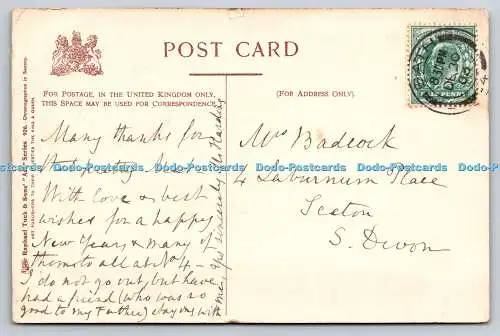 POST CARD
FOR POSTAGE, IN THE UNITED KINGDOM ONLY,
THIS SPACE MAY BE USED FOR CORRESPONDENCE.
(FOR ADDRESS ONLY).
Raphael Tuck & Sons' "Series 920.
Many thanks for
that pretty
With love & best
wishes for a happy
New Year & many of
them to all at No 4 —
I do not go out, but have
had a friend (who was so
good to my Father) staying with
me, yrs sincerely
Mrs Badcock
4 Laburnum Place
Seaton
S. Devon
Postcards-Docto Postcards-Docto Postcards-Docto Postcards-Docto